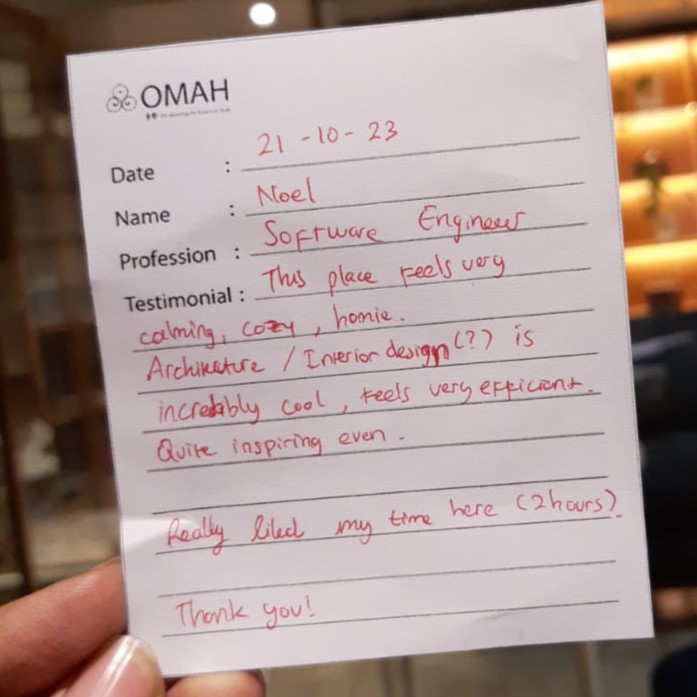 OMAH
Date : 21-10-23
Name : Noel
Profession : Software Engineer
Testimonial : This place feels very
calming, cozy, homie.
Architecture / Interior design (?) is
incredibly cool, feels very efficient.
Quite inspiring even.
Really liked my time here (2 hours).
Thank you!